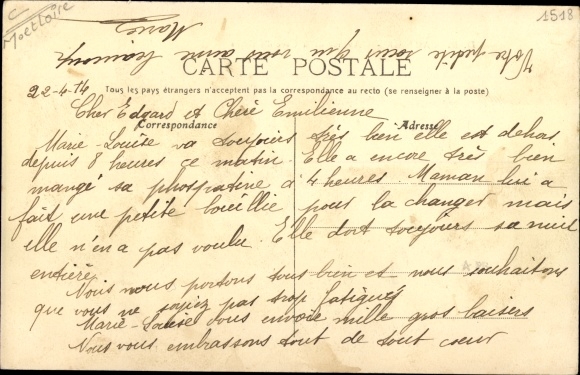 C
M et Loire
1518
Votre petite soeur qui vous aime beaucoup
Marie
CARTE POSTALE
22-4-14
Tous les pays étrangers n'acceptent pas la correspondance au recto (se renseigner à la poste)
Cher Edgard et Chère Emilienne
Correspondance
Adresse
Marie-Louise va toujours très bien elle est dehors
depuis 8 heures ce matin. Elle a encore très bien
mangé sa phosphatine à 4 heures. Maman lui a
fait une petite bouillie pour la changer mais
elle n'en a pas voulu. Elle dort toujours sa nuit
entière
Nous nous portons tous bien et nous souhaitons
que vous ne soyiez pas trop fatigués
Marie-Louise vous envoie mille gros baisers
Nous vous embrassons tout de tout coeur